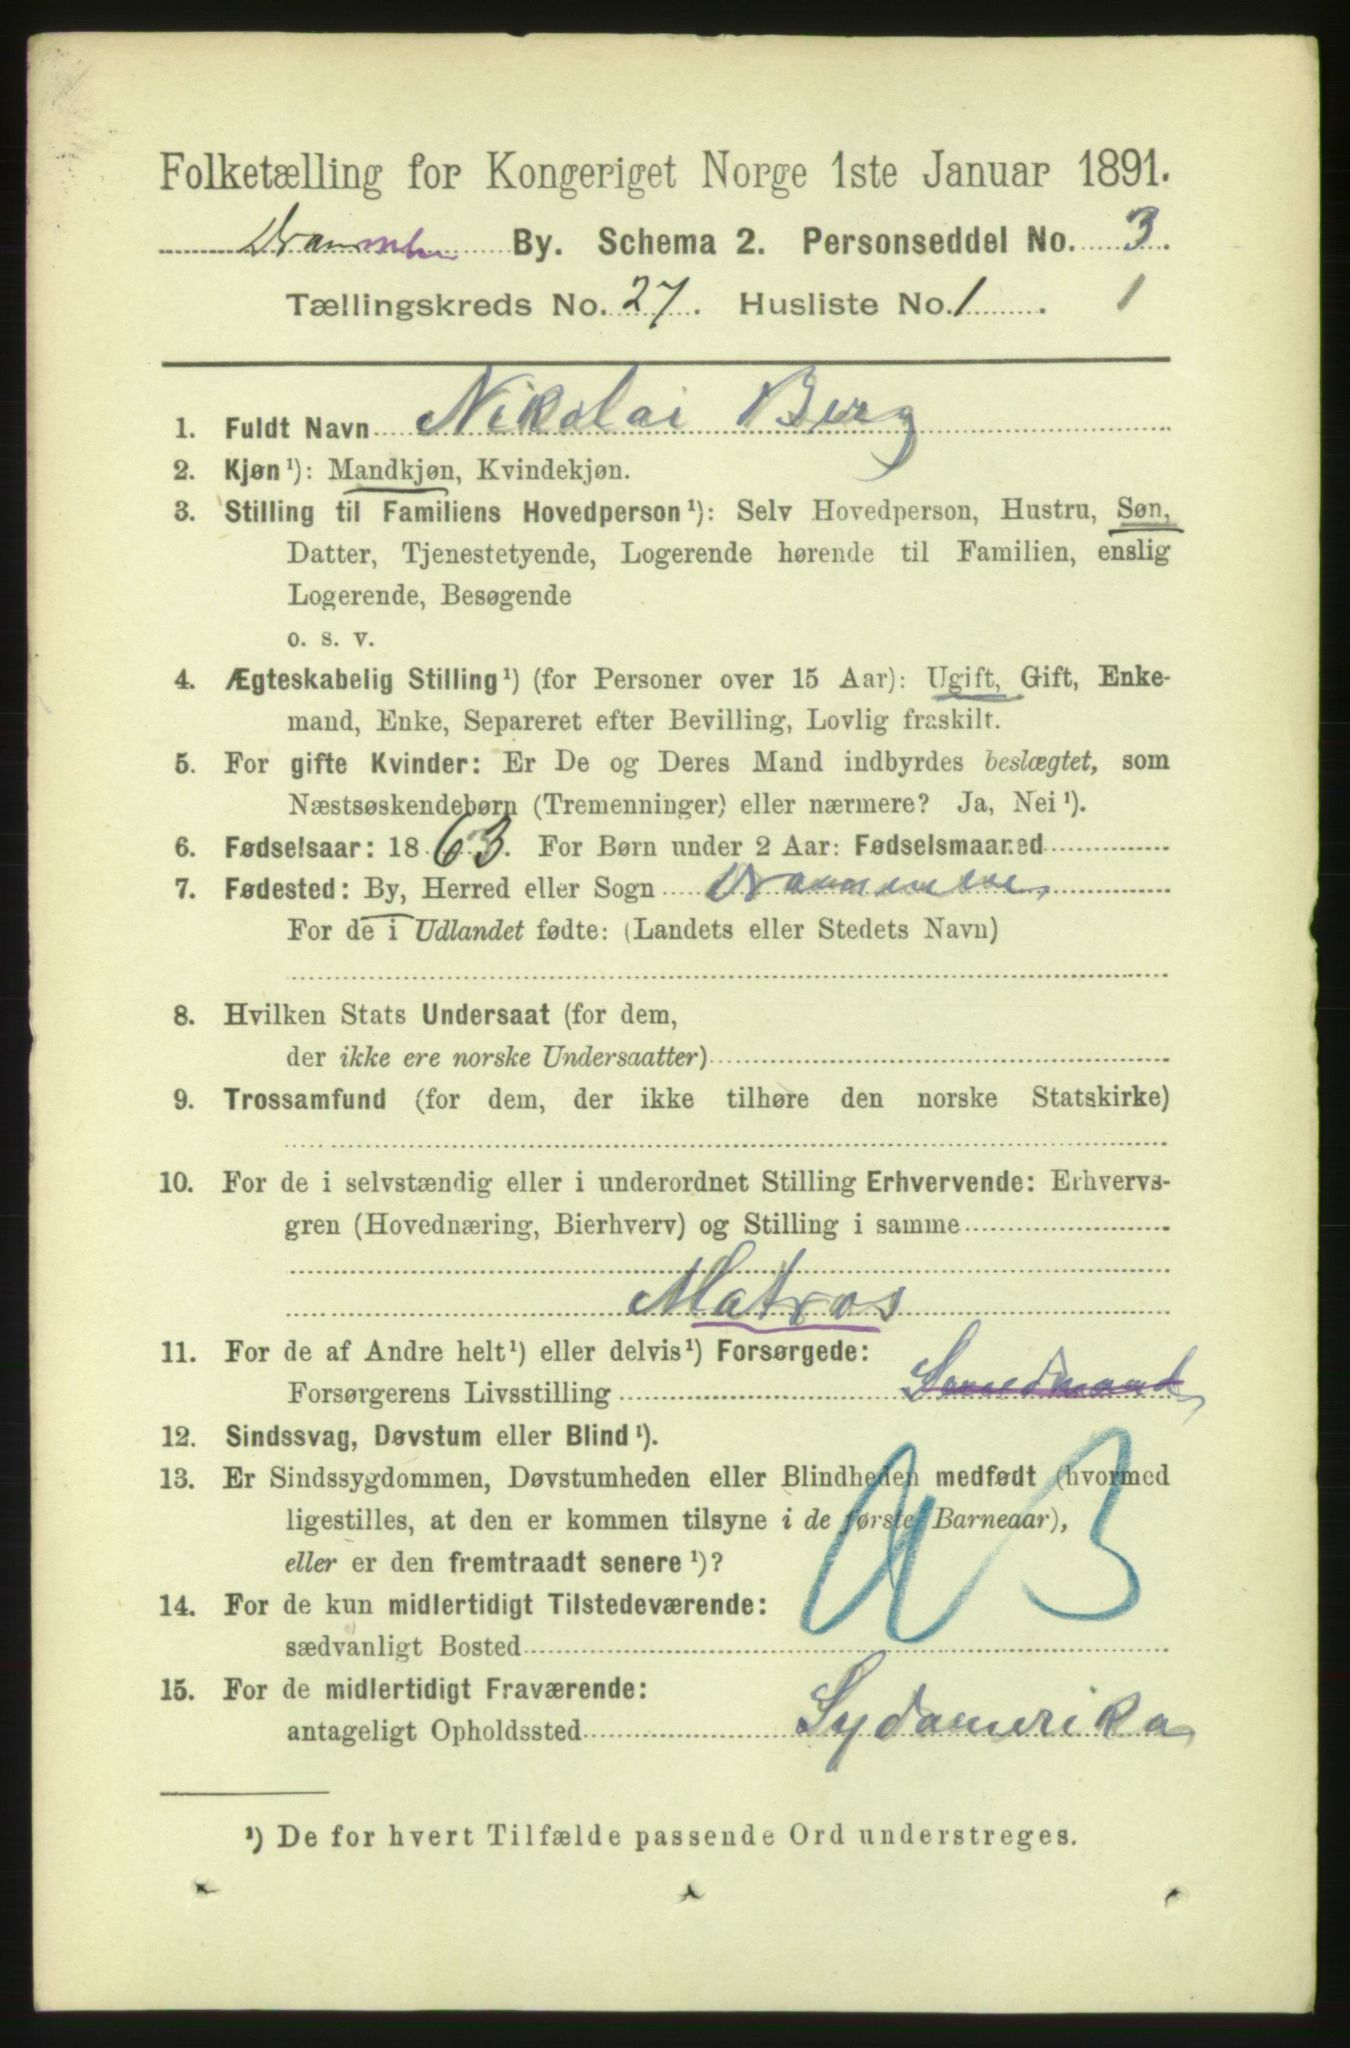 Folketælling for Kongeriget Norge 1ste Januar 1891.
Drammen By. Schema 2. Personseddel No. 3.
Tællingskreds No. 27. Husliste No. 1. 1
1. Fuldt Navn Nikolai Berg
2. Kjøn¹): Mandkjøn, Kvindekjøn.
3. Stilling til Familiens Hovedperson¹): Selv Hovedperson, Hustru, Søn,
Datter, Tjenestetyende, Logerende hørende til Familien, enslig
Logerende, Besøgende
o. s. v.
4. Ægteskabelig Stilling¹) (for Personer over 15 Aar): Ugift, Gift, Enke-
mand, Enke, Separeret efter Bevilling, Lovlig fraskilt.
5. For gifte Kvinder: Er De og Deres Mand indbyrdes beslægtet, som
Næstsøskendebørn (Tremenninger) eller nærmere? Ja, Nei¹).
6. Fødselsaar: 1863. For Børn under 2 Aar: Fødselsmaaned
7. Fødested: By, Herred eller Sogn Drammen
For de i Udlandet fødte: (Landets eller Stedets Navn)
8. Hvilken Stats Undersaat (for dem,
der ikke ere norske Undersaatter)
9. Trossamfund (for dem, der ikke tilhøre den norske Statskirke)
10. For de i selvstændig eller i underordnet Stilling Erhvervende: Erhvervs-
gren (Hovednæring, Bierhverv) og Stilling i samme
Matros
11. For de af Andre helt¹) eller delvis¹) Forsørgede:
Forsørgerens Livsstilling
12. Sindssvag, Døvstum eller Blind¹).
13. Er Sindssygdommen, Døvstumheden eller Blindheden medfødt (hvormed
ligestilles, at den er kommen tilsyne i de første Barneaar),
eller er den fremtraadt senere¹)?
14. For de kun midlertidigt Tilstedeværende:
sædvanligt Bosted
15. For de midlertidigt Fraværende:
antageligt Opholdssted Sydamerika
¹) De for hvert Tilfælde passende Ord understreges.